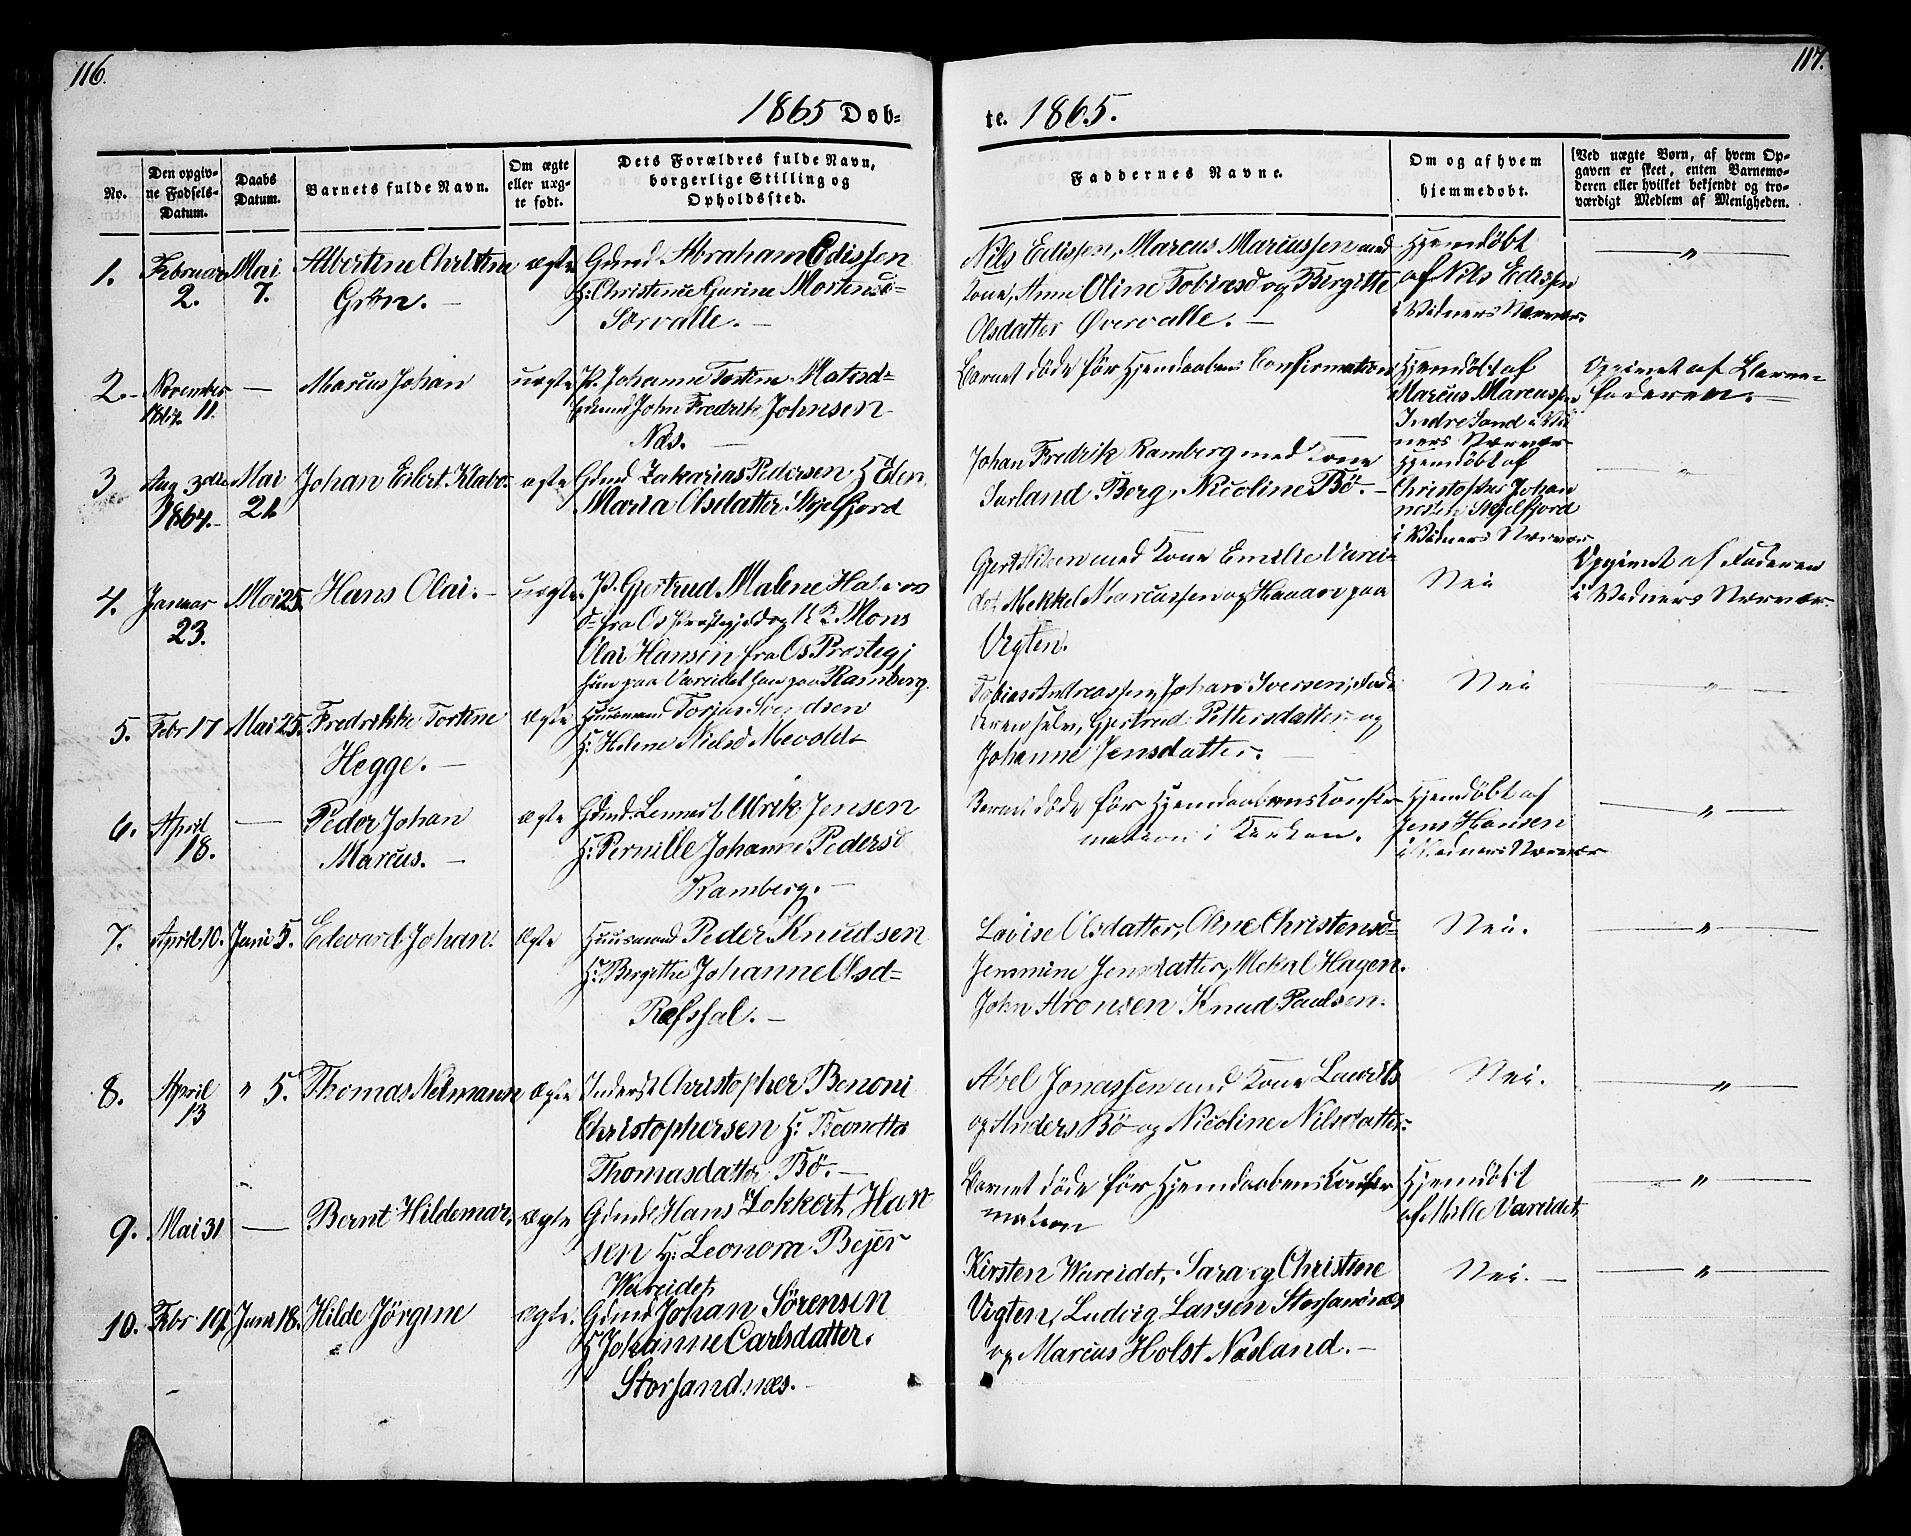 116.
117.
1865 Døb=
te. 1865.
No.
Den opgiv-
ne Fødsels-
Datum.
Daabs
Datum.
Barnets fulde Navn.
Om ægte
eller uæg-
te født.
Dets Forældres fulde Navn,
borgerlige Stilling og
Opholdssted.
Faddernes Navne.
Om og af hvem
hjemmedøbt.
(Ved uægte Børn, af hvem Op-
gaven er skeet, enten Barnemo-
deren eller hvilket bekjendt og tro-
værdigt Medlem af Menigheden.
1.
Februar
2.
Mai
7.
Albertine Christine
Grøn. -
ægte
Gmd Abraham Edissen
H: Christence Gurine Mortensd=
Sørvalle. -
Nils Edissen, Marcus Marcussen med
Kone, Anne Oline Tobiasd og Bergitte
Olsdatter Øvervalle. -
Hjemdøbt
af Nils Edissen
i Vidners Nærvær
"
2.
November
1864. 11.
-
Marcus Johan
uægte
P. Johanne Tortine Matisd=
Johan Fredrik Johnsen
Næs.
Barnet døde før Hjemdaabens Confirmation
Hjemdøbt af
Marcus Marcussen
Indre Sand i Vid
ners Nærvær
Opgivet af Barne-
faderen. -
3
Aug 3die
1864.
Mai
21
Johan Eilert Klabo.
ægte
Gmd Zakarias Pedersen H Elen
Maria Olsdatter Skjelfjord
Johan Fredrik Ramberg med Kone
Berg, Nicoline Bö. -
Hjemdøbt af
Christopher Johan
nesen Skjelfjord
i Vidners Nærvær
"
4.
Januar
23.
Mai 25.
Hans Olai. -
uægte.
P. Gjertrud Malene
d= fra Os Præstegjeld og Mons
Olai Hansen fra Os Præstegj
hun paa Vareidet han paa Ramberg.
Gjert Nilsen med Kone Emilie Varei-
det Mekkel Marcussen og paa
Vigten.
Nei
Opgivet af Faderen
i Vidners Nærvær.
5.
Febr 17
Mai 25.
Fredrikke Tortine
Hegge. -
Ægte
Huusmand Torjus Svendsen
H: Helene Nielsd Mevold
Tobias Andreassen, Johan Iversen, Fade
deren selv, Gjertrud Pettersdatter og
Johanne Jensdatter.
Nei
"
6.
April
18.
-
Peder Johan
Marcus. -
ægte
Gmd. Lennert Ulrik Jensen
H: Pernille Johanne Pedersd
Ramberg. -
Barnet døde før Hjemdaabens Konfir
mation i Kirken.
Hjemdøbt af
Jens Hansen
i Vidners Nærvær
"
7.
April 10.
Juni 5.
Edevard Johan.
Ægte
Huusmand Peder Knudsen
H: Birgithe Johanne Olsd=
Ræfsfal. -
Lovise Olsdatter, Oline Christensd
Jemmine Jensdatter, Mekal Hagen.
John Aronsen Knud Paulsen.
Nei.
"
8.
April
13
" 5.
Thomas Neumann
Ægte
Inderst Christopher Benoni
Christophersen H:
Thomasdatter Bö. -
Axel Jonassen med Kone Laurits
og Anders Bö og Nicoline Nilsdatter.
Nei.
"
9.
Mai 31
-
Bernt Hildemar,
ægte
Gmd Hans Lokkert Han
sen H: Leonora Bejer
Wareidet
Barnet døde før Hjemdaabens Konfir
mation
Hjemdøbt
af Mille Vareidet.
"
10.
Febr 19
Juni 18.
Hilde Jörgine
ægte.
Gmd Johan Sörensen
H Johanne Carlsdatter.
Storsandnæs. -
Kirsten Wareidet, Sara og Christine
Vigten, Ludvig Larsen Storsandnæs
og Marcus Holst Næsland. -
Nei. -
"